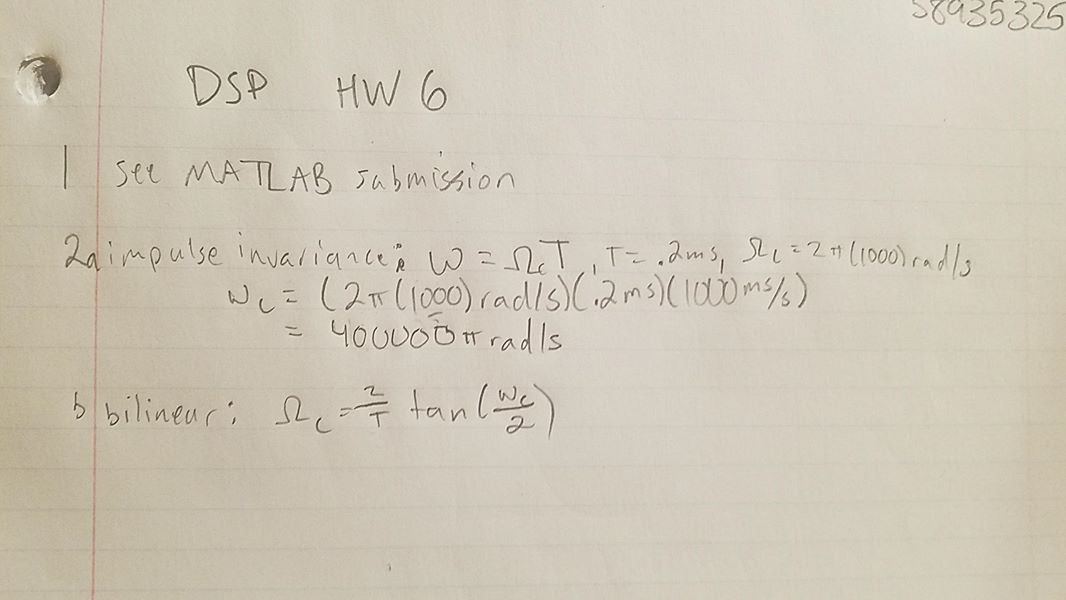 58935325
DSP HW 6
1 see MATLAB submission
2a impulse invariance: ω = Ω_c T, T = .2ms, Ω_c = 2π(1000) rad/s
ω_c = (2π(1000) rad/s)(.2ms)(1000 ms/s)
= 400000 π rad/s
b bilinear: Ω_c = 2/T tan(ω_c/2)